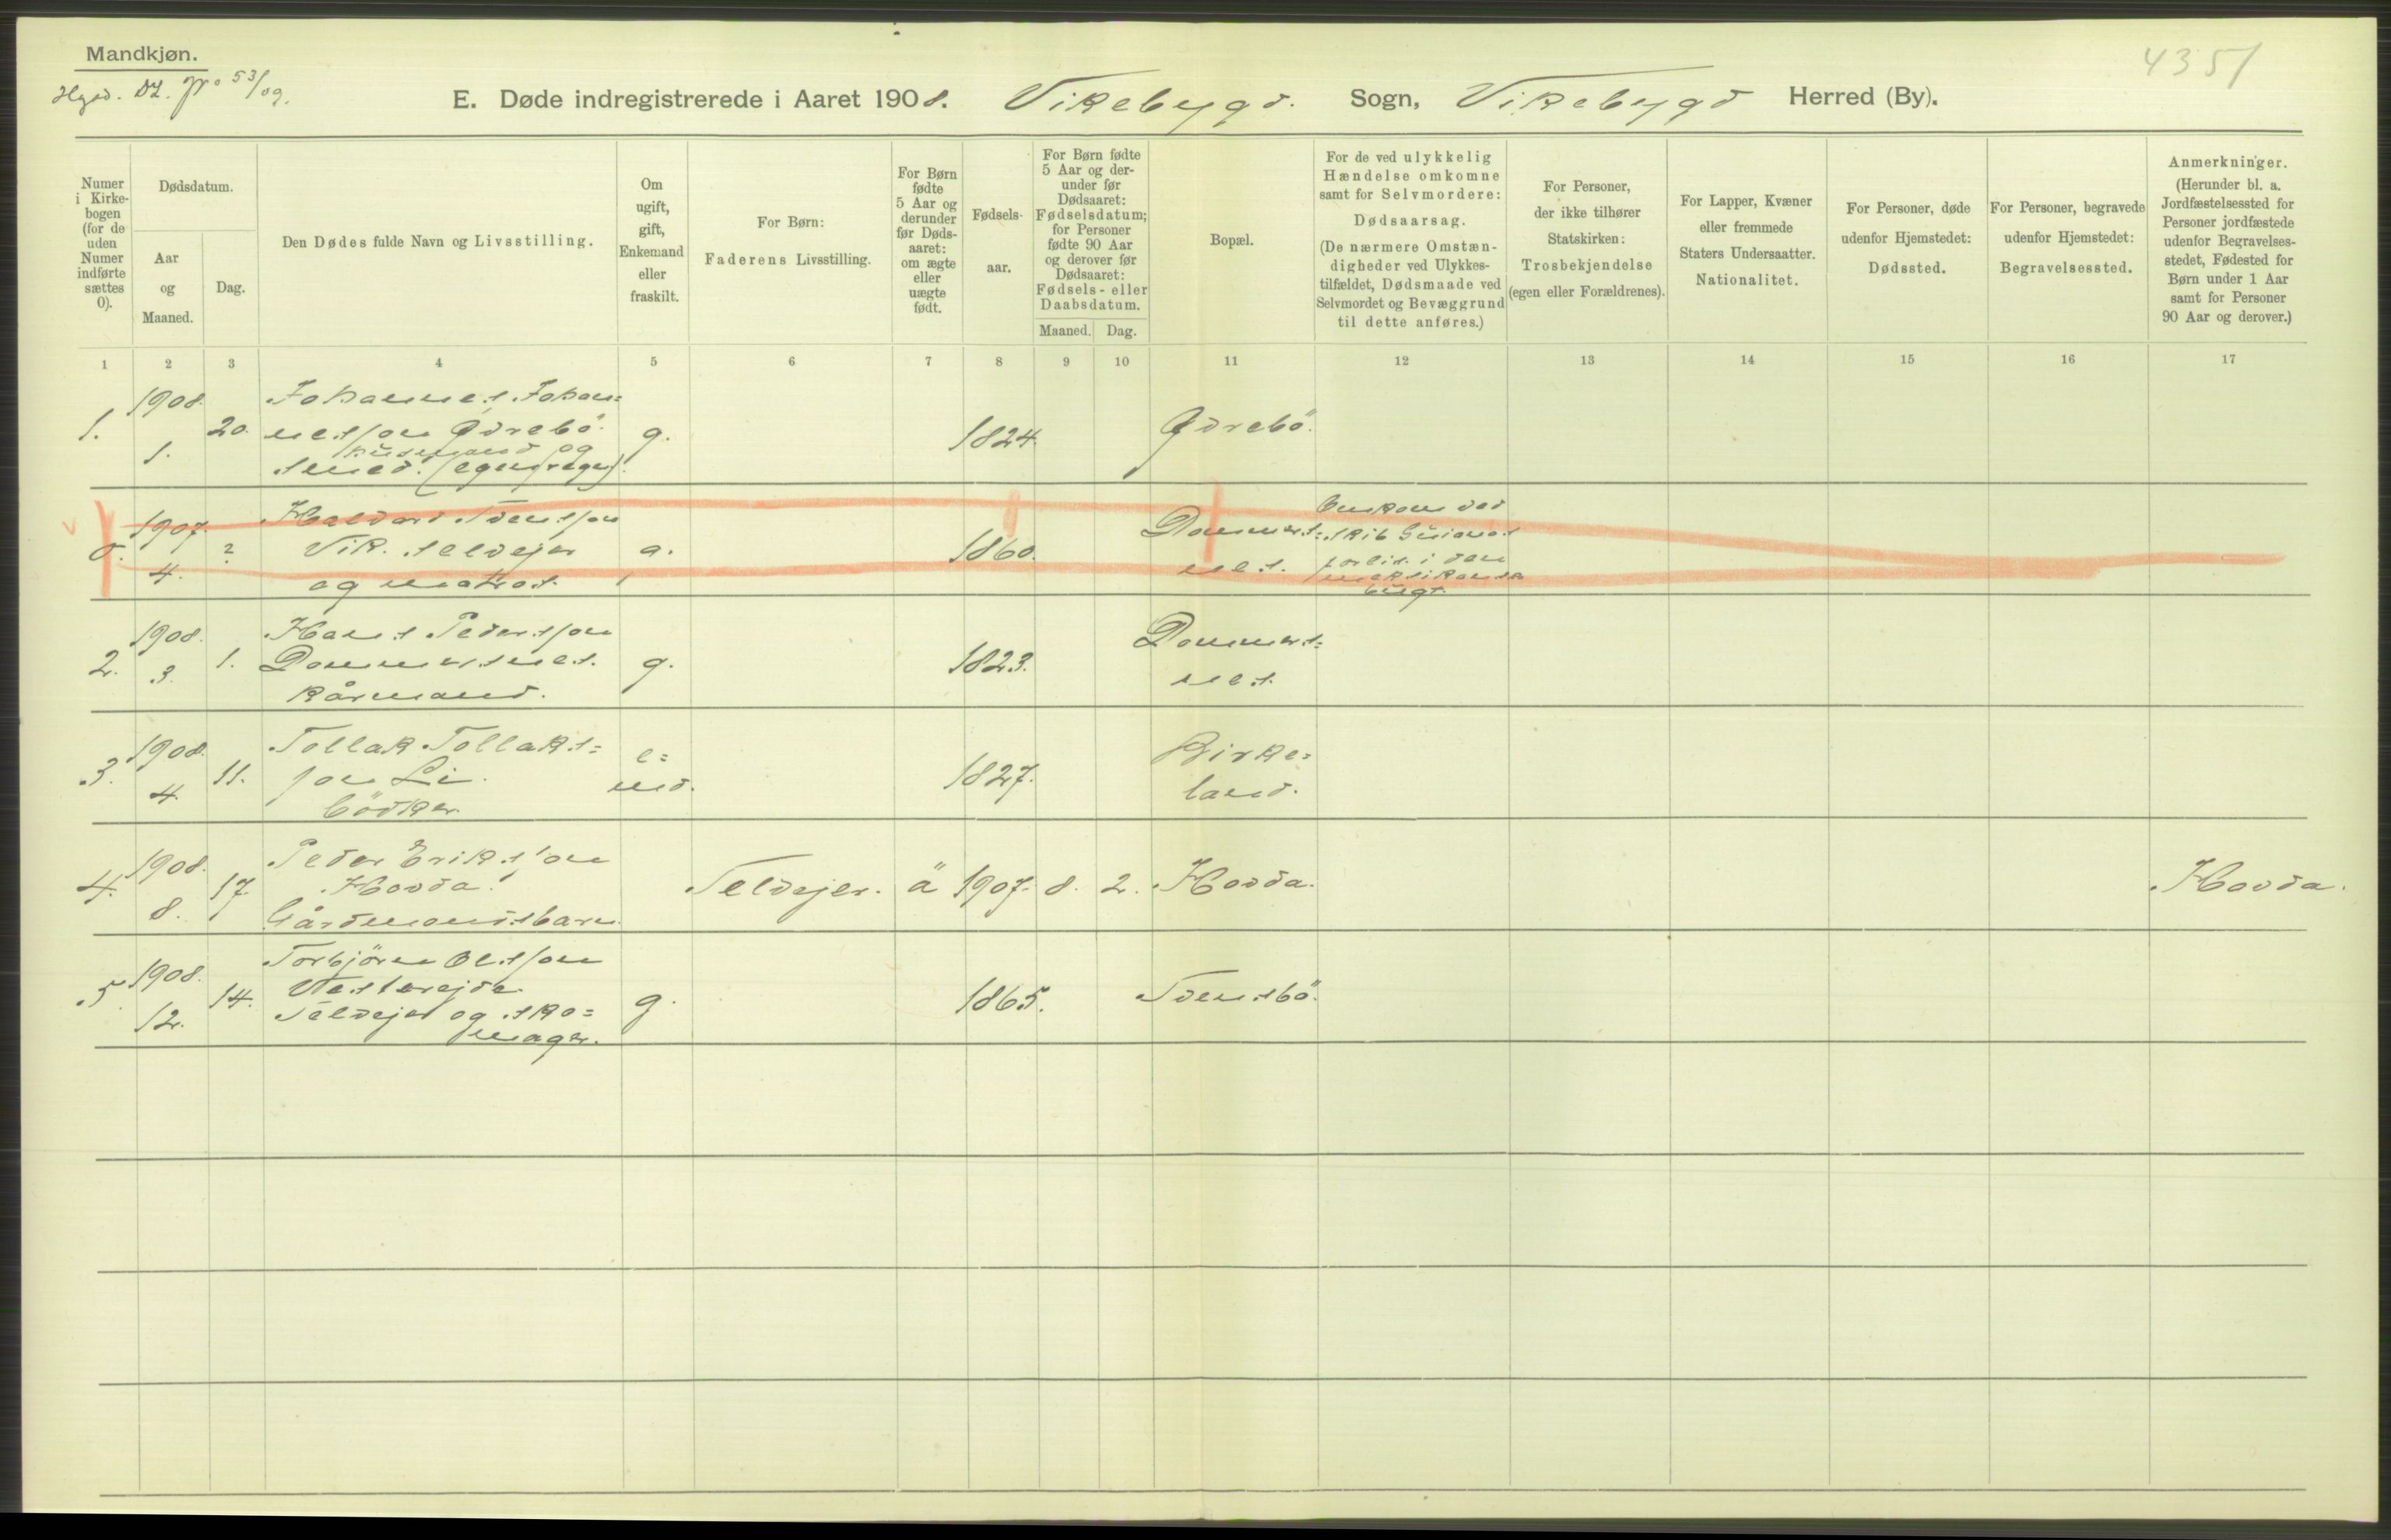 Mandkjøn.
4351
Hgsd. DZ. No 53/09.
E. Døde indregistrerede i Aaret 1908. Vikebygd. Sogn, Vikebygd Herred (By).
Numer i Kirke-bogen (for de uden Numer indførte sættes 0).
Dødsdatum.
Aar og Maaned.
Dag.
Den Dødes fulde Navn og Livsstilling.
Om ugift, gift, Enkemand eller fraskilt.
For Børn: Faderens Livsstilling.
For Børn fødte 5 Aar og derunder før Døds-aaret: om ægte eller uægte født.
Fødsels-aar.
For Børn fødte 5 Aar og der-under før Dødsaaret: Fødselsdatum; for Personer fødte 90 Aar og derover før Dødsaaret: Fødsels- eller Daabsdatum.
Maaned. Dag.
Bopæl.
For de ved ulykkelig Hændelse omkomne samt for Selvmordere: Dødsaarsag. (De nærmere Omstæn-digheder ved Ulykkes-tilfældet, Dødsmaade ved Selvmordet og Bevæggrund til dette anføres.)
For Personer, der ikke tilhører Statskirken: Trosbekjendelse (egen eller Forældrenes).
For Lapper, Kvæner eller fremmede Staters Undersaatter. Nationalitet.
For Personer, døde udenfor Hjemstedet: Dødssted.
For Personer, begravede udenfor Hjemstedet: Begravelsessted.
Anmerkninger. (Herunder bl. a. Jordfæstelsessted for Personer jordfæstede udenfor Begravelses-stedet, Fødested for Børn under 1 Aar samt for Personer 90 Aar og derover.)
1 2 3 4 5 6 7 8 9 10 11 12 13 14 15 16 17
1. 1908. 1. 20. Johannes Johan=
nesson Ørebö.
husmand og
smed. g. 1824. Ørebö.
0. 1907. 4. ? Haldor Svensson
Vik. selvejer
og matros. g. 1860. Dommers=
nes. Omkom ved
skib
forlis i den
meksikanske
bugt.
2. 1908. 3. 1. Hans Pedersson
Dommersnes.
kårmand. g. 1823. Dommers=
nes.
3. 1908. 4. 11. Tollak Tollaks=
son Li.
bödker. e=
md. 1827. Birke=
land.
4. 1908. 8. 17. Peder Eriksson
Hovda.
Gårdmandsbarn. Selvejer. ä 1907. 8. 2. Hovda. Hovda.
5. 1908. 12. 14. Torbjörn Olsson
Selvejer og sko=
mager. g. 1865. Svensbö.